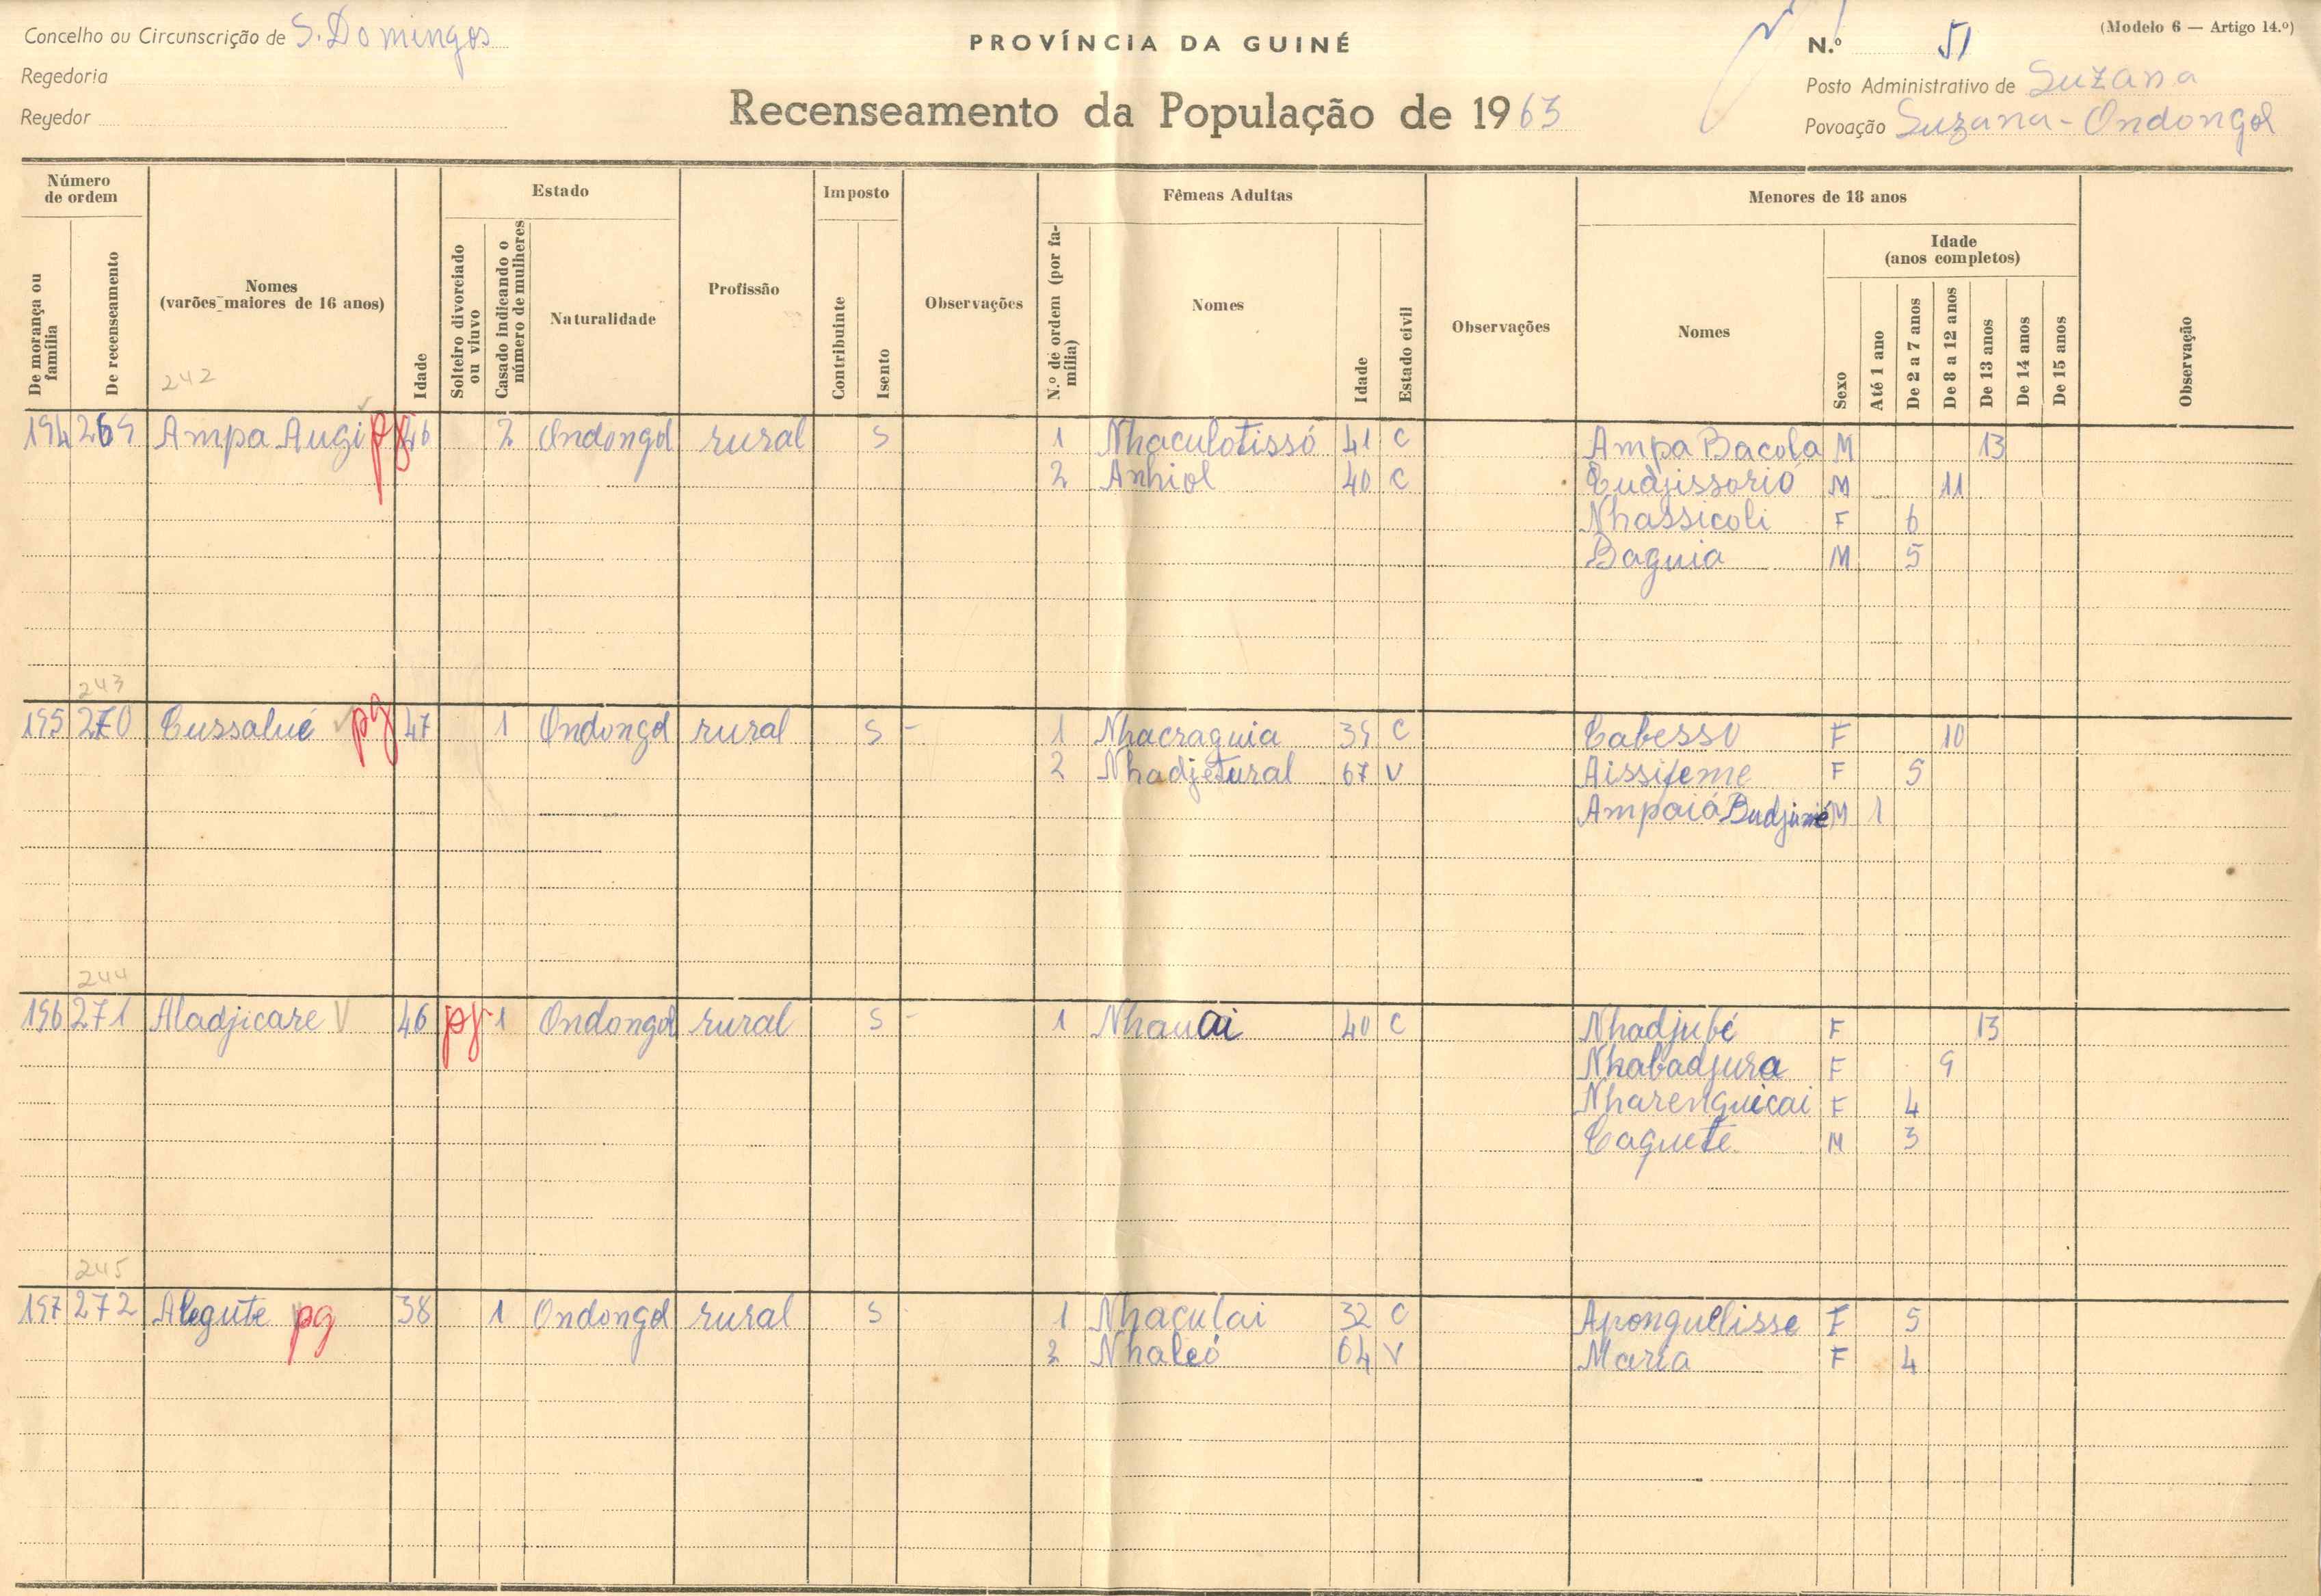 Concelho ou Circunscrição de S. Domingos
Regedoria
Regedor
PROVÍNCIA DA GUINÉ
Recenseamento da População de 1963
(Modelo 6 — Artigo 14.º)
N.º 51
Posto Administrativo de Suzana
Povoação Suzana - Ondongol
Número de ordem
De morança ou família
De recenseamento
Nomes
(varões maiores de 16 anos)
Idade
Estado
Solteiro divorciado ou viuvo
Casado indicando o número de mulheres
Naturalidade
Profissão
Imposto
Contribuinte
Isento
Observações
Fêmeas Adultas
N.º de ordem (por família)
Nomes
Idade
Estado civil
Observações
Menores de 18 anos
Nomes
Sexo
Idade
(anos completos)
Até 1 ano
De 2 a 7 anos
De 8 a 12 anos
De 13 anos
De 14 anos
De 15 anos
Observação
242
194 269 Ampa Augi pg 46 2 Ondongol rural S 1 Nhaculotissó 41 C Ampa Bacola M 13
2 Anhiol 40 C Cudjissorió M 11
Nhassicoli F 6
Baguia M 5
243
195 270 Cussalué pg 47 1 Ondongol rural S - 1 Nhacraguia 39 C Cabesso F 10
2 Nhadjetural 67 V Aissifeme F 5
Ampaiá M 1
244
196 271 Aladjicare 46 pg 1 Ondongol rural S - 1 Nhauai 40 C Nhadjubé F 13
Nhabadjura F 9
Nharenguicai F 4
Caguete M 3
245
197 272 Alegute pg 38 1 Ondongol rural S 1 Nhaculai 32 C Aponguelisse F 5
2 Nhaleó 64 V Maria F 4